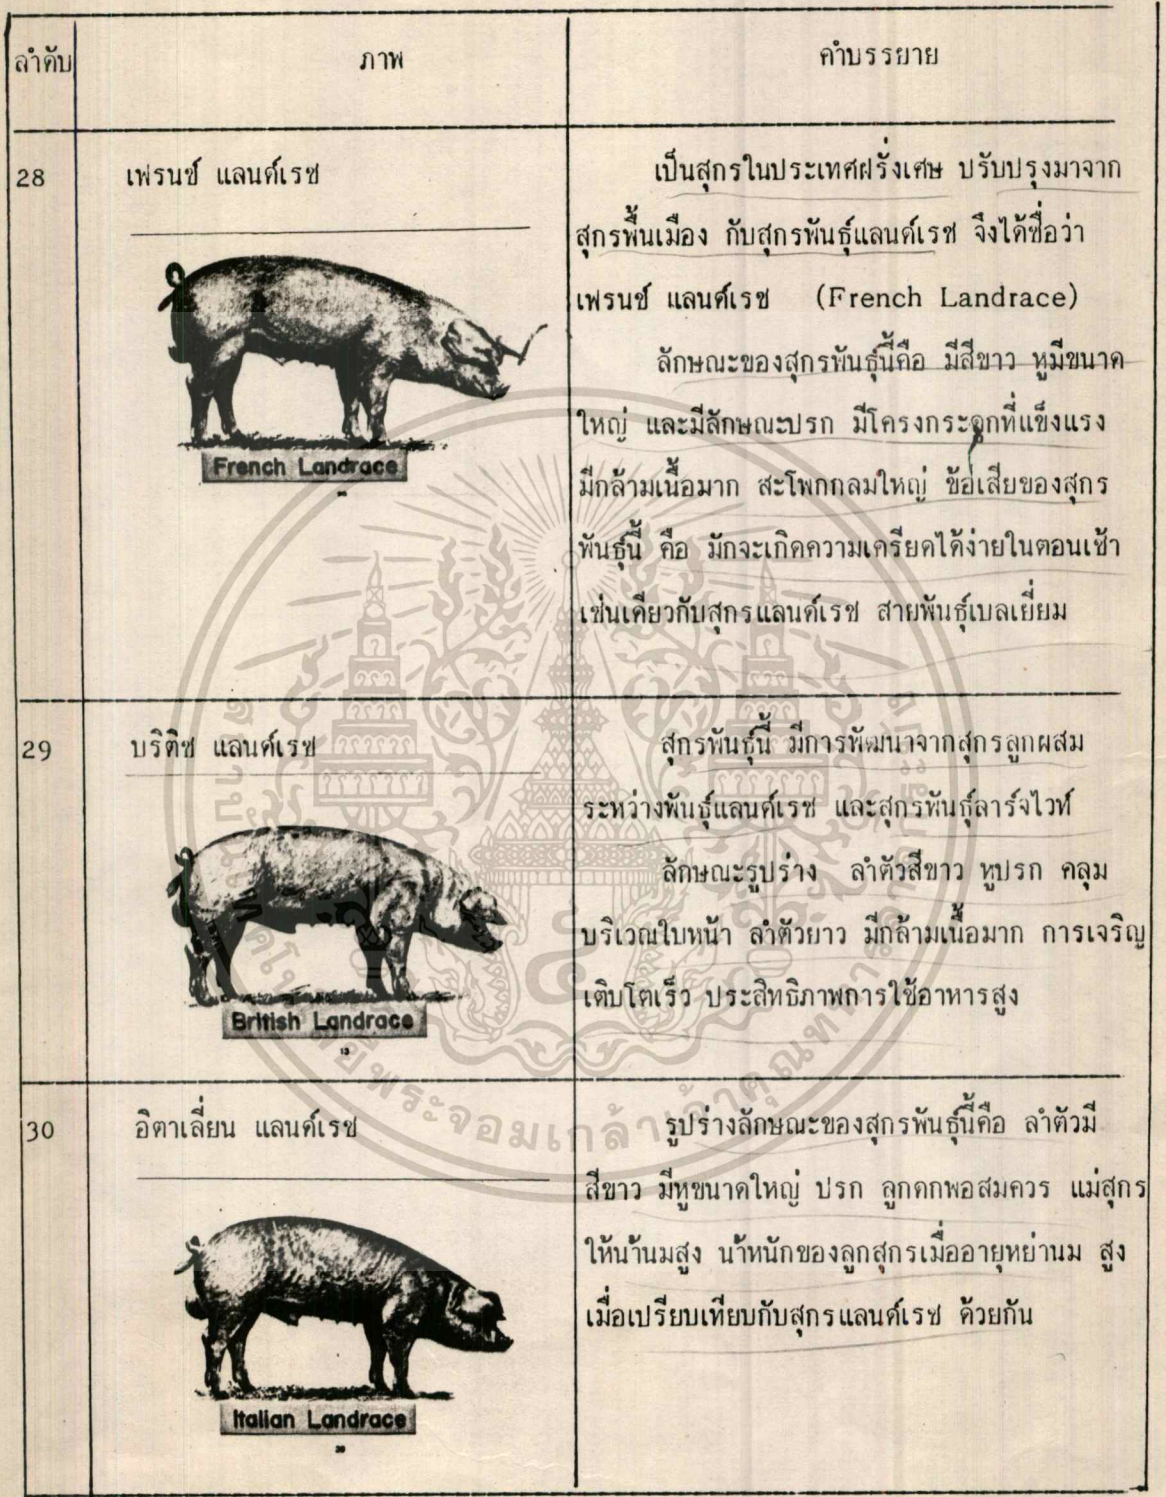 ลำดับ
ภาพ
คำบรรยาย
28
เฟรนซ์ แลนด์เรซ
French Landrace
เป็นสุกรในประเทศฝรั่งเศษ ปรับปรุงมาจาก
สุกรพื้นเมือง กับสุกรพันธุ์แลนด์เรซ จึงได้ชื่อว่า
เฟรนซ์ แลนด์เรซ (French Landrace)
ลักษณะของสุกรพันธุ์นี้คือ มีสีขาว หูมีขนาด
ใหญ่ และมีลักษณะปรก มีโครงกระดูกที่แข็งแรง
มีกล้ามเนื้อมาก สะโพกกลมใหญ่ ข้อเสียของสุกร
พันธุ์นี้ คือ มักจะเกิดความเครียดได้ง่ายในตอนเช้า
เช่นเดียวกับสุกรแลนด์เรซ สายพันธุ์เบลเยี่ยม
29
บริติช แลนด์เรซ
British Landrace
13
สุกรพันธุ์นี้ มีการพัฒนาจากสุกรลูกผสม
ระหว่างพันธุ์แลนด์เรซ และสุกรพันธุ์ลาร์จไวท์
ลักษณะรูปร่าง ลำตัวสีขาว หูปรก คลุม
บริเวณใบหน้า ลำตัวยาว มีกล้ามเนื้อมาก การเจริญ
เติบโตเร็ว ประสิทธิภาพการใช้อาหารสูง
30
อิตาเลี่ยน แลนด์เรซ
Italian Landrace
รูปร่างลักษณะของสุกรพันธุ์นี้คือ ลำตัวมี
สีขาว มีหูขนาดใหญ่ ปรก ลูกดกพอสมควร แม่สุกร
ให้น้ำนมสูง น้ำหนักของลูกสุกรเมื่ออายุหย่านม สูง
เมื่อเปรียบเทียบกับสุกรแลนด์เรซ ด้วยกัน
พระจอมเกล้าเจ้าคุณทหาร